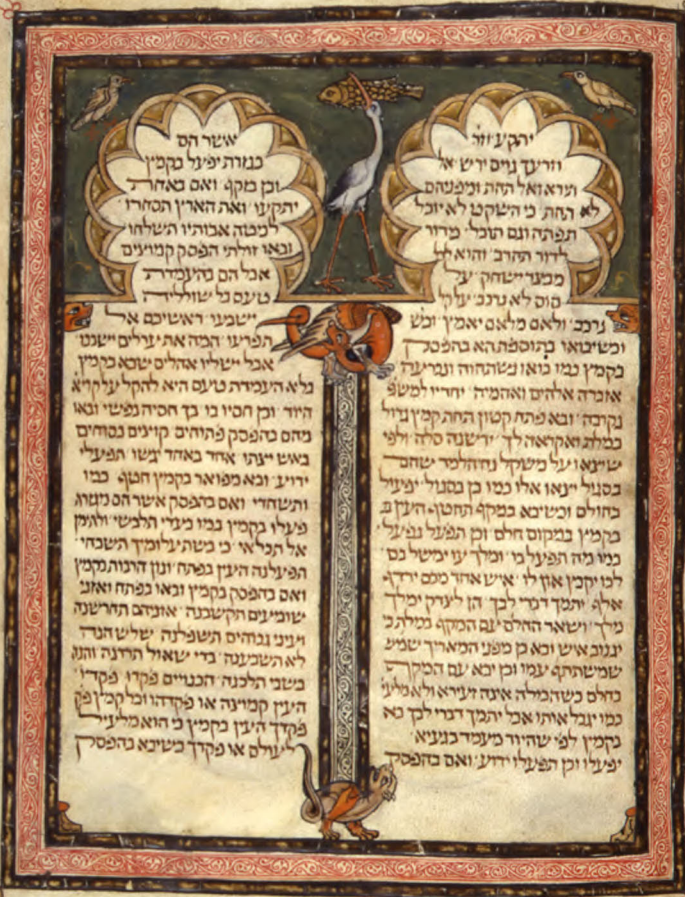 וזרעך גוים יירש אל
תירא ואל תחת
לא תחת כי השקט לא יוכל
תפתה וגם תוכל מדור
לדור תחרב והוא
ישחק על
סוס לא נרכב על קל
נרכב ולאם מלאם יאמץ וכש
וכשיבואו בתוספת הא בהפסק
בקמץ כמו באו נשתחוה ונכרעה
אזכרה אלהים ואהמיה יחדיו למשפט
נקרבה ובא פתח קטון תחת קמץ גדול
במלת ואקראה לך ידשנה סלה ולפי
בסגול ויבאו אלו כמו כן בסגול יפעיל
בחולם וכשיבא במקף תחטף העין
בקמץ במקום חלם וכן תפעל נפעל
כמו מה תפעל בו ומלך עז ימשל בם
לבו יקבץ און לו איש אחד מכם ירדף
אלף יתמך דברי לבך הן לצדק ימלך
מלך ושאר החלם עם המקף במלת כי
יגנוב איש ובא כן מפני המאריך שמש
שמשתתף עמו וכן יבא עם המקף
בחלם כשהמלה אינה זעירא ולא מלעיל
כמו יגמל אותו אבל יתמך דברי לבך בא
בקמץ לפי שהיוד מעמד בגעיא
יפעלו וכן תפעלו ידוע ואם בהפסק
אשר הם
בגזרת יפעל בקמץ
וכן מקף ואם באתנח
יתקעו ואת הארץ תסחרו
למטה אבותיו תשלחו
ובאו זולתי הפסק קמוצים
אבל הם בהעמדת
טעם כל שולליה
ישמעו ראשיכם אל
תפרעו המה את נעלים
אבל ישליו אהלים שבא בקמץ
בלא העמדת טעם היא להקל על קריא
היוד וכן חסיו בו בך חסיה נפשי ובאו
מהם בהפסק פתוחים קוצים כסוחים
באש יצתו אחד באחד יגשו תפעלי
ידוע ובא מפואר בקמץ חטף כמו
ותשחדי ואם בהפסק אשר הם מגזרת
פעלו בקמץ כמו בעדי תלבשי ולהימן
אל תכלאי כי בשת עלומיך תשכחי
תפעלנה העין בפתח ונון הרבות בקמץ
ואם בהפסק בקמץ ובאו בפתח ואזני
שומעים תקשבנה אזניהם תחרשנה
ועיני גבוהים תשפלנה שלש הנה
לא תשבענה בדי שאול תרדנה והנון
בשבי תלכנה הכנויים פקדו פקדיו
העין קמוצה או פקדהו וכל קמץ פק
פקדך העין בקמץ כי הוא מלעיל
לעולם או פקדך כשיבא בהפסק